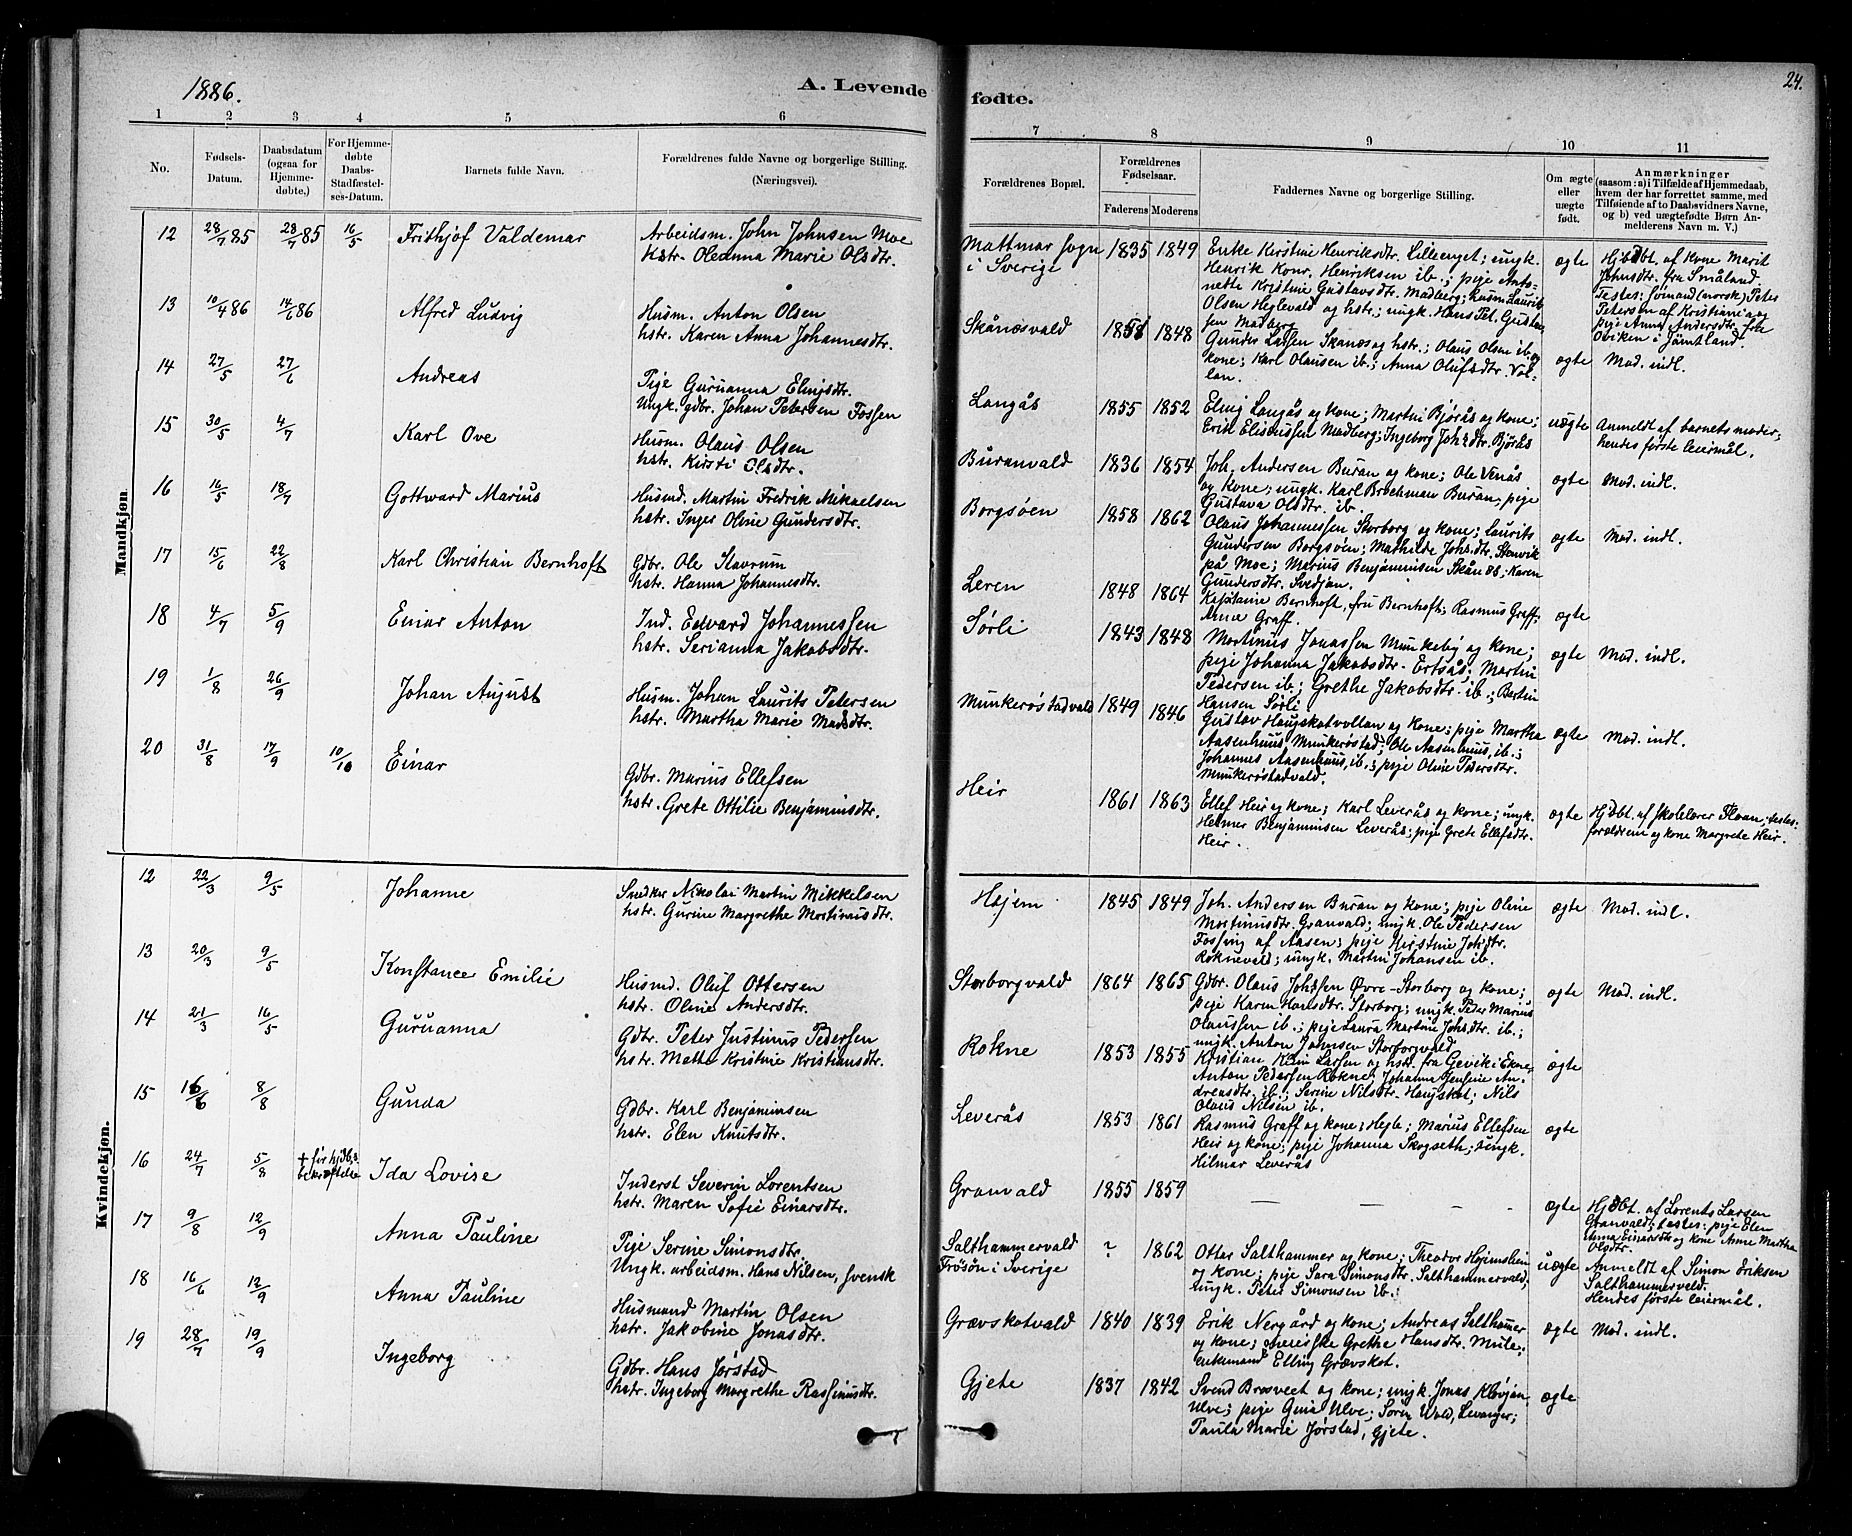 1886.
A. Levende
1 2 3 4 5 6
No.
Fødsels-
Datum.
Daabsdatum
(ogsaa for
Hjemme-
døbte.)
For Hjemme-
døbte
Daabs-
Stadfæstel-
ses-Datum.
Barnets fulde Navn.
Forældrenes fulde Navne og borgerlige Stilling.
(Næringsvei).
Mandkjøn.
12 28/7 85 29/7 85 16/5 Frithjof Valdemar
Arbeidsm. John Johnsen Moe
hstr. Oleanna Marie Olsdtr.
13 10/4 86 14/6 86 Alfred Ludvig
Husm. Anton Olsen
hstr. Karen Anna Johannesdtr.
14 27/5 27/6 Andreas
Pige Guruanna Elingsdtr.
Ungk. gdbr. Johan Petersen Fossen
15 30/5 4/7 Karl Ove
Husm. Olaus Olsen
hstr. Kirsti Olsdtr.
16 16/5 18/7 Gottward Marius
Husmd. Martin Fredrik Mikaelsen
hstr. Inger Oline Gundersdtr.
17 15/6 22/8 Karl Christian Bernhoft
Gdbr. Ole Stavrum
hstr. Hanna Johannesdtr.
18 4/7 5/9 Einar Anton
Ind. Edvard Johannessen
hstr. Serianna Jakobsdtr.
19 1/8 26/9 Johan August
Husm. Johan Laurits Petersen
hstr. Martha Marie Madsdtr.
20 31/8 17/9 10/10 Einar
Gdbr. Marius Ellefsen
hstr. Grete Ottilie Benjaminsdtr.
Kvindekjøn.
12 22/3 9/5 Johanne
Snedker Nikolai Martin Mikkelsen
hstr. Gurine Margrethe Mortinusdtr.
13 20/3 9/5 Konstance Emilie
Husmd. Oluf Ottersen
hstr. Oline Andersdtr.
14 21/3 16/5 Guruanna
Gdbr. Peter Justinus Pedersen
hstr. Mette Kristine Kristiansdtr.
15 16/6 8/8 Gunda
Gdbr. Karl Benjaminsen
hstr. Elen Knutsdtr.
16 24/7 5/8 Ida Lovise
Inderst Severin Lorentsen
hstr. Maren Sofie Einarsdtr.
17 9/8 12/9 Anna Pauline
Pige Serine Simonsdtr.
Ungk. arbeidsm. Hans Nilsen, svensk
18 16/6 12/9 Anna Pauline
Husmand Martin Olsen
hstr. Jakobine Jonasdtr.
19 28/7 19/9 Ingeborg
Gdbr. Hans Jørstad
hstr. Ingeborg Margrethe Rasmusdtr.
fødte.
24.
7 8 9 10 11
Forældrenes Bopæl.
Forældrenes
Fødselsaar.
Faderens Moderens
Faddernes Navne og borgerlige Stilling.
Om ægte
eller
uægte
født.
Anmærkninger
(saasom: a) i Tilfælde af Hjemmedaab,
hvem der har forrettet samme, med
Tilføiende af to Daabsvidners Navne,
og b) ved uægtefødte Børn An-
melderens Navn m. V.)
Mattmar sogn
i Sverige
1835 1849
Enke Kirstine Henriksdtr. Lilleenget; ungk.
Henrik Konr. Henriksen ib.; pige Anto-
nette Kristine Gustavsdtr. Madberg; husm. Laurits
Olsen Heglevald og hstr.; ungk. Hans Pet. Gustav-
sen Madberg
ægte
Hjdbt. af kone Marit
Johnsdtr. fra Småland.
Testes: svimand (norsk) Peter
Petersen af Kristiania og
pige Anna Andersdtr. fra
Oviken i Jämtland.
Skånæsvald 1851 1848
Gunder Larsen Skånæs og hstr.; Olaus Olsen ib. og
kone; Karl Olausen ib.; Anna Olufsdtr. Vol-
lan.
ægte Mod. indl.
Langås 1855 1852
Eling Langås og kone; Martin Bjørås og kone;
Erik Eliseussen Madberg; Ingeborg Johsdtr. Bjørås
uægte
Anmeldt af barnets moder;
hendes første leiermål.
Buranvald 1836 1854
Joh. Andersen Buran og kone; Ole Venås
og kone; ungk. Karl Brochman Buran, pige
Gustava Olsdtr. ib.
ægte Mod. indl.
Borgsøen 1858 1862
Olaus Johannessen Storborg og kone; Laurits
Gundersen Borgsøen; Mathilde Johsdtr. Stenvik
på Moe; Marius Benjaminsen Skånes, Karen
Gundersdtr. Svedjan.
ægte Mod. indl.
Leren 1848 1864
Kaptaine Bernhoft, fru Bernhoft; Rasmus Graff
Anne Graff.
ægte
Sørli 1843 1848
Mortinus Jonassen Munkeby og kone;
pige Johanna Jakobsdtr. Ertsås; Martin
Pedersen ib.; Grethe Jakobsdtr. ib.; Bertin
Hansen Sørli
ægte Mod. indl.
Munkerøstadvald 1849 1846
Gustav Haugskotvollan og kone; pige Martha
Aasenhuus, Munkerøstad; Ole Aasenhuus, ib.;
Johannes Aasenhuus, ib.; pige Oline Pedersdtr.
Munkerøstadvald.
ægte Mod. indl.
Heir 1861 1863
Ellef Heir og kone; Karl Leverås og kone; ungk.
Helmer Benjaminsen Leverås; pige Grete Ellefsdtr.
Heir.
ægte
Hjdbt. af skolelærer Floan, testes:
forældrene og kone Margrete Heir.
Hojem 1845 1849
Joh. Andersen Buran og kone; pige Oline
Mortinusdtr. Granvald; ungk. Ole Pedersen
Fossing af Aasen; pige Kirstine Johsdtr.
Roknevald; ungk. Martin Johansen ib.
ægte Mod. indl.
Storborgvald 1864 1865
Gdbr. Olaus Johssen Øvre-Storborg og kone;
pige Karen Hansdtr. Storborg; ungk. Peder Marius
Olaussen ib.; pige Laura Martine Johsdtr. ib.;
ungk. Anton Johnsen Storborgvald
ægte Mod. indl.
Rokne 1853 1855
Kristian Larsen og hstr. fra Gevik i Ekne,
Anton Pedersen Rokne; Johanna Jensine An-
dreasdtr. ib.; Serine Nilsdtr. Haugskot; Nils
Olaus Nilsen ib.
ægte
Leverås 1853 1861
Rasmus Graff og kone, Hegle; Marius Ellefsen
Heir og kone; pige Johanna Skogseth; ungk.
Hilmar Leverås
ægte
Granvald 1855 1859
— — -
ægte
Hjdbt. af Lorents Larsen
Granvald; testes: pige Elen
Anna Einarsdtr og kone Anne Martha
Olsdtr.
Salthammervald
Frösön i Sverige
? 1862
Otter Salthammer og kone; Theodor Højemsheim
og kone; pige Sara Simonsdtr. Salthammervald;
ungk. Peter Simonsen ib.
uægte
Anmeldt af Simon Eriksen
Salthammervald.
Hendes første leiermål.
Grævskotvald 1840 1839
Erik Nergård og kone; Andreas Salthammer
og kone; Grethe Hansdtr. Mule;
enkemand Elling Grævskot.
ægte Mod. indl.
Gjete 1837 1842
Svend Brøsveet og kone; ungk. Jonas Kløvjan,
Ulve; pige Gina Ulve; Søren Wold, Levanger;
Paula Marie Jørstad, Gjete.
ægte